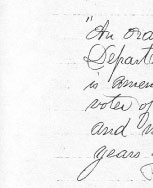 "An ora
Departm
is amen
voter of
and w
years